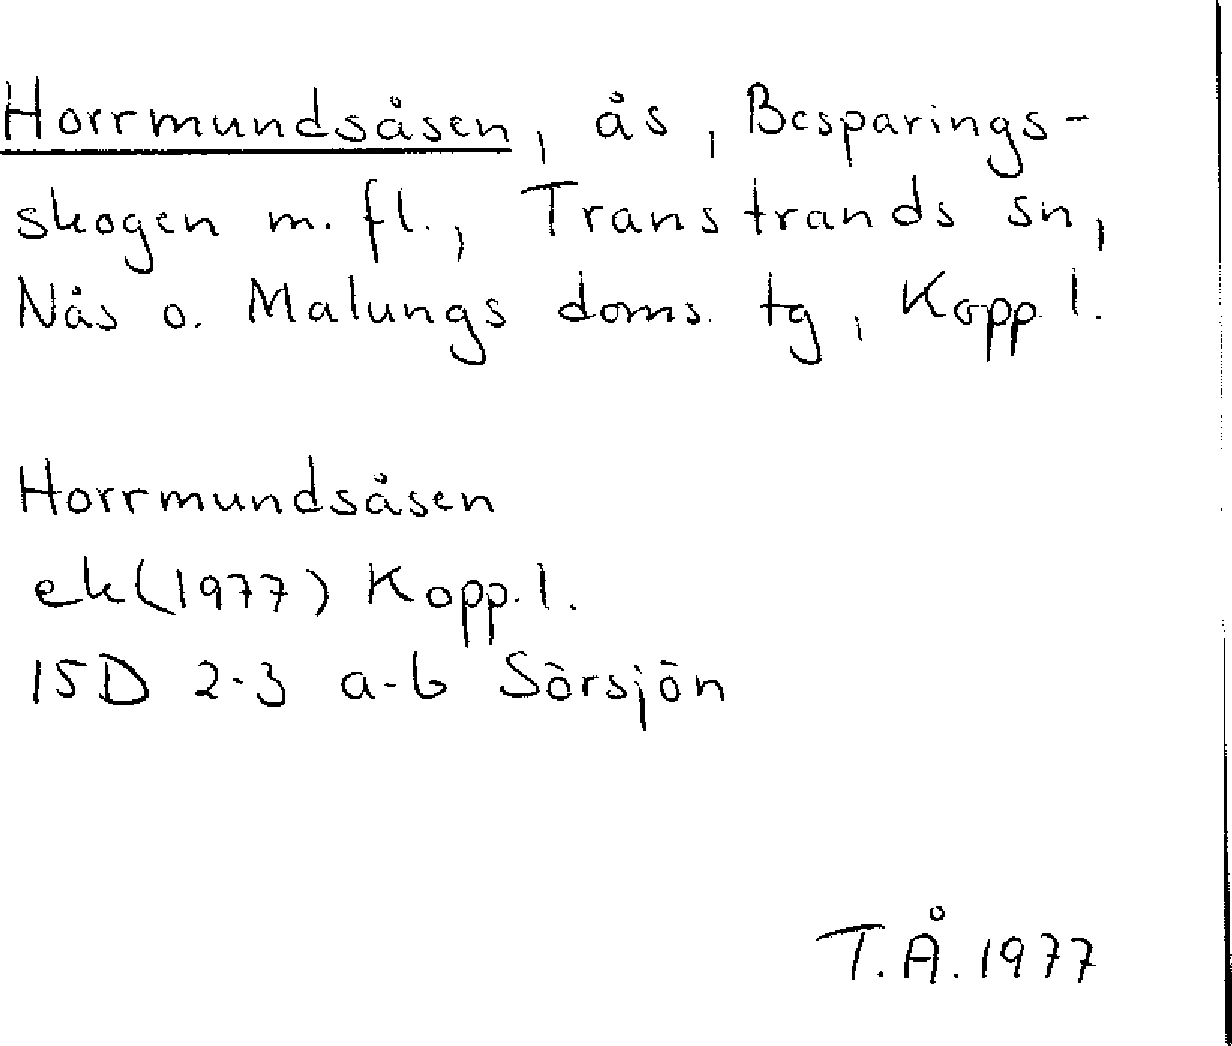 Horrmundsåsen, ås, Besparings-
skogen m. fl., Transtrands sn,
Nås o. Malungs doms. tg, Kopp l.
Horrmundsåsen
ek (1977) Kopp. l.
15D 2-3 a-b Sörsjön
T.Å. 1977